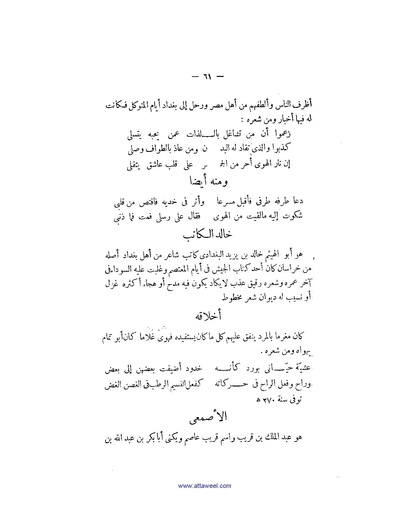 — ٦١ —
أظرف الناس وألطفهم من أهل مصر ورحل إلى بغداد أيام المتوكل فكانت
له فيها أخبار ومن شعره :
زعموا أن من تشاغل باللذات عمن يحبه يتسلى
كذبوا والذي تقاد له البدن ومن عاذ بالطواف وصلى
إن نار الهوى أحر من الجمر على قلب عاشق يتقلى
ومنه أيضا
دعا طرفه طرفى فأقبل مسرعا وأثر فى خديه فاقتص من قلبى
شكوت إليه مالقيت من الهوى فقال على رسلى فمت فما ذنبى
خالد الكاتب
هو أبو الهيثم خالد بن يزيد البغدادى كاتب شاعر من أهل بغداد أصله
من خراسان كان أحد كتاب الجيش فى أيام المعتصم وغلبت عليه السوداء فى
آخر عمره وشعره رقيق عذب لايكاد يكون فيه مدح أو هجاء أكثره غزل
أو نسيب له ديوان شعر مخطوط
أخلاقه
كان مغرما بالمرد ينفق عليهم كل ماكان يستفيده فهوى غلاما كان أبو تمام
يهواه ومن شعره .
عشية حيانى بورد كأنه خدود أضيفت بعضهن إلى بعض
وراح وفعل الراح فى حركاته كفعل النسيم الرطب فى الغصن الغض
توفى سنة ٢٧٠ ه
الأصمعى
هو عبد الملك بن قريب واسم قريب عاصم ويكنى أبابكر بن عبد الله بن
www.attaweel.com